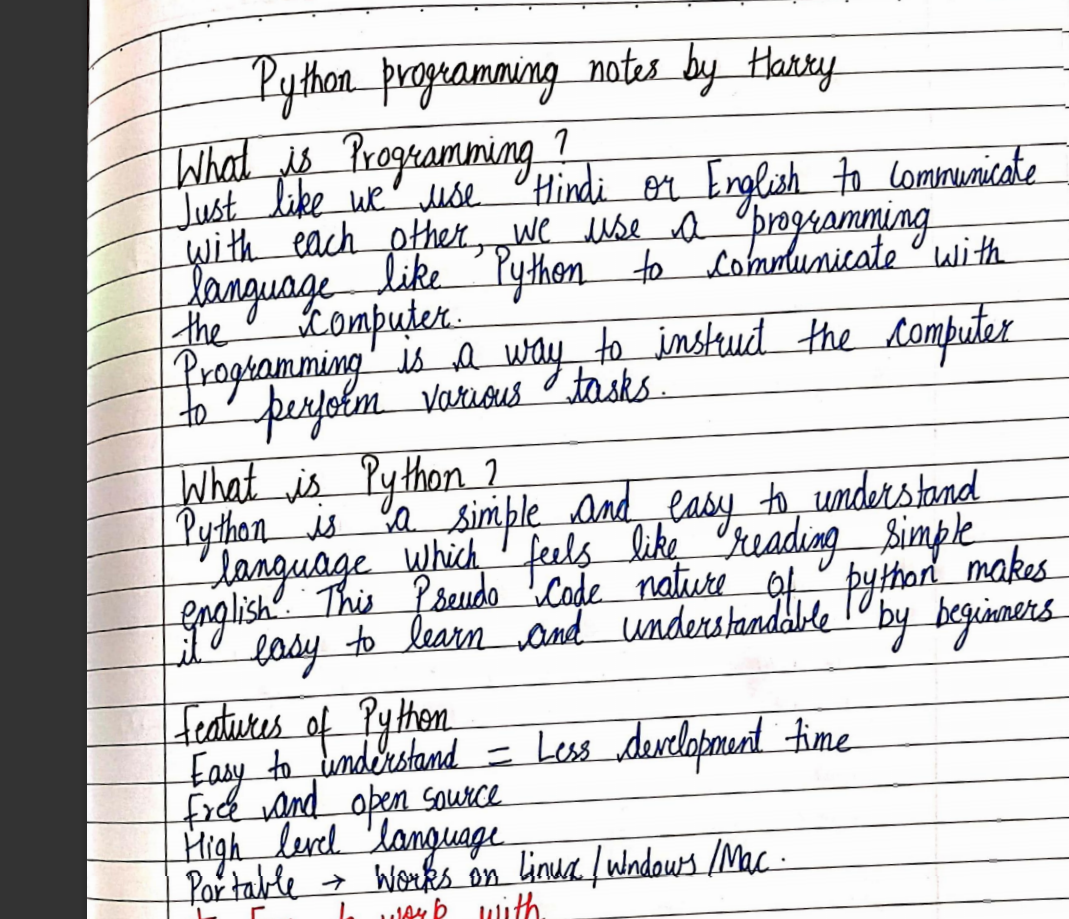 Python programming notes by Harry
What is Programming ?
Just like we use Hindi or English to communicate
with each other, we use a programming
language like Python to communicate with
the computer.
Programming is a way to instruct the computer
to perform various tasks.
What is Python ?
Python is a simple and easy to understand
language which feels like reading simple
english. This Pseudo Code nature of python makes
it easy to learn and understandable by beginners
features of Python
Easy to understand = Less development time
free and open source
High level language
Portable → Works on Linux / Windows / Mac.
work with